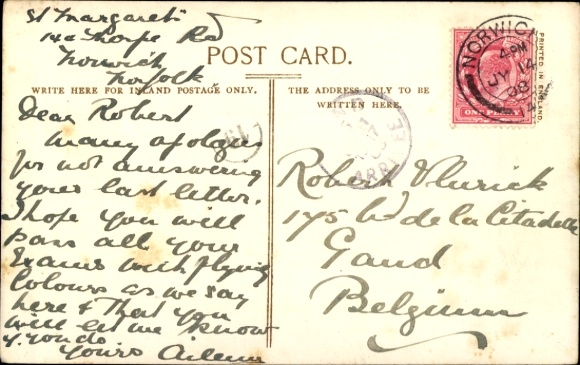 St Margaret's
Thorpe Rd
Norwich
Norfolk
POST CARD.
WRITE HERE FOR INLAND POSTAGE ONLY.
THE ADDRESS ONLY TO BE
WRITTEN HERE.
Dear Robert
many apologies
for not answering
your last letter.
I hope you will
pass all your
Exams with flying
Colours as we say
here & that you
will let me know
if you do
Yours
Robert
175 Bd de la Citadelle
Gand
Belgium
NORWICH
4 PM
JY 14
08
ONE PENNY
PRINTED IN ENGLAND